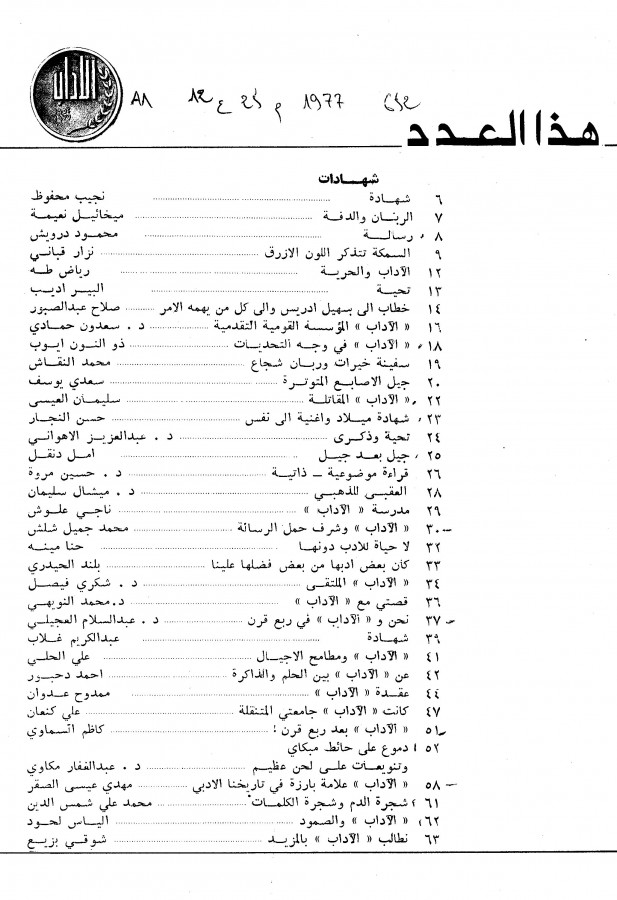 الآداب
AΛ 12 ع 25 م 1977
هذا العدد
شهادات
٦ شهادة نجيب محفوظ
٧ الربان والدفة ميخائيل نعيمة
٨ رسالة محمود درويش
٩ السمكة تتذكر اللون الازرق نزار قباني
١٢ الآداب والحرية رياض طه
١٣ تحية البير اديب
١٤ خطاب الى سهيل ادريس والى كل من يهمه الامر صلاح عبدالصبور
١٦ « الآداب » المؤسسة القومية التقدمية د . سعدون حمادي
١٨ « الآداب » في وجه التحديات ذو النون ايوب
١٩ سفينة خيرات وربان شجاع محمد النقاش
٢٠ جيل الاصابع المتوترة سعدي يوسف
٢٢ « الآداب » المقاتلة سليمان العيسى
٢٣ شهادة ميلاد واغنية الى نفس حسن النجار
٢٤ تحية وذكرى د . عبدالعزيز الاهواني
٢٥ جيل بعد جيل امل دنقل
٢٦ قراءة موضوعية ــ ذاتية د . حسين مروة
٢٨ العقبى للذهبي د . ميشال سليمان
٢٩ مدرسة « الآداب » ناجي علوش
٣٠ « الآداب » وشرف حمل الرسالة محمد جميل شلش
٣٢ لا حياة للادب دونها حنا مينه
٣٣ كان بعض ادبها من بعض فضلها علينا بلند الحيدري
٣٤ « الآداب » الملتقى د . شكري فيصل
٣٦ قصتي مع « الآداب » د.محمد النويهي
٣٧ نحن و « الآداب » في ربع قرن د . عبدالسلام العجيلي
٣٩ شهادة عبدالكريم غلاب
٤١ « الآداب » ومطامح الاجيال علي الحلي
٤٢ عن « الآداب » بين الحلم والذاكرة احمد دحبور
٤٤ عقدة « الآداب » ممدوح عدوان
٤٧ كانت « الآداب » جامعتي المتنقلة علي كنعان
٥١ « الآداب » بعد ربع قرن ! كاظم السماوي
٥٢ دموع على حائط مبكاي
وتنويعات على لحن عظيم د . عبدالغفار مكاوي
٥٨ « الآداب » علامة بارزة في تاريخنا الادبي مهدي عيسى الصقر
٦١ شجرة الدم وشجرة الكلمات محمد علي شمس الدين
٦٢ « الآداب » والصمود الياس لحود
٦٣ نطالب « الآداب » بالمزيد شوقي بزيع